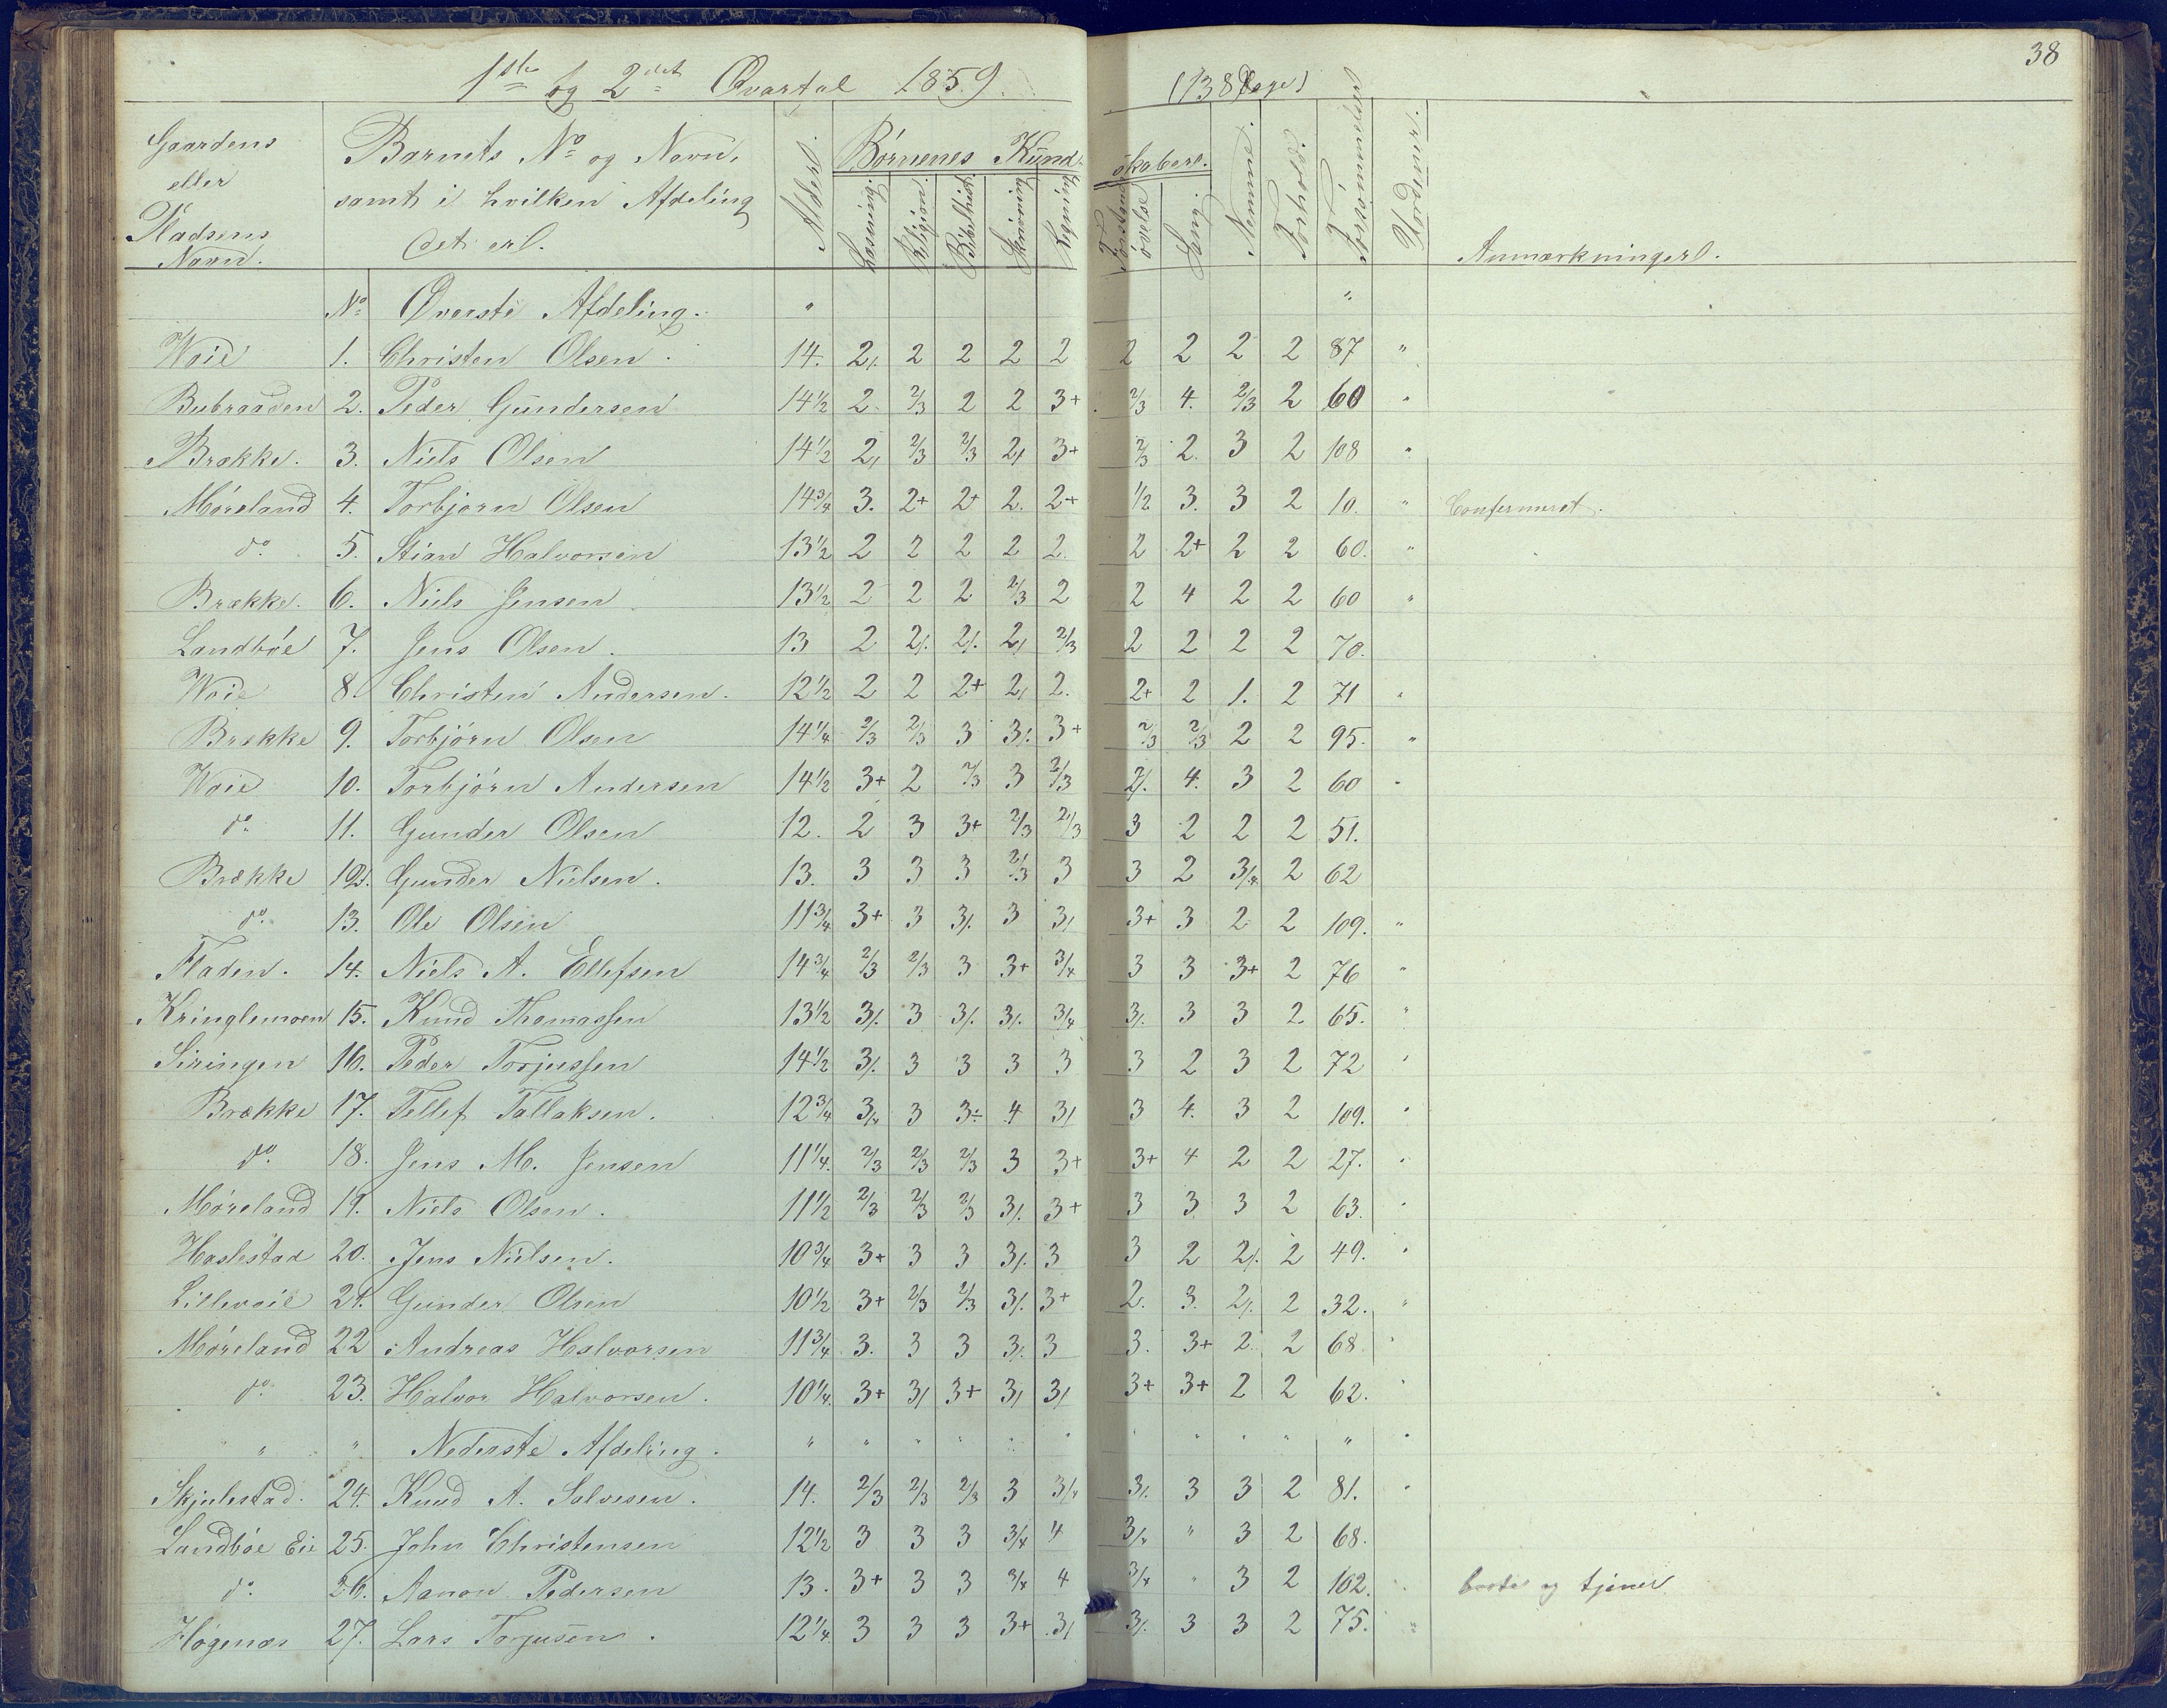 38
1ste og 2det Qvartal 1859. (138 Dage)
Gaardens eller Pladsens Navn. | Barnets No og Navn, samt i hvilken Afdeling det er. | Alder. | Børnenes Kundskaber. | Nemme. | Forhold. | Forsømmelser | Anmærkninger.
Læsning. | Religion. | Bibelhist. | Skrivning | Regning | Forstandsøvelse | Sang.
No Øverste Afdeling. "
Woie 1. Christen Olsen. 14. 2/. 2 2 2 2 2 2 2 2 87 "
Bubraaden 2. Peder Gundersen 14 1/2 2. 2/3 2 2 3+ 2/3 4. 2/3 2 60 "
Brække. 3. Niels Olsen 14 1/2 2/ 2/3 2/3 2/ 3+ 2/3 2. 3 2 108 "
Møreland 4. Torbjørn Olsen 14 3/4 3. 2+ 2+ 2. 2+ 1/2 3. 3 2 10. " Confirmeret.
do. 5. Stian Halvorsen 13 1/2 2 2 2 2 2. 2 2+ 2 2 60. "
Brække. 6. Niels Jensen 13 1/2 2 2 2 2/3 2 2 4 2 2 60 "
Landbøe 7. Jens Olsen. 13 2 2/. 2/. 2/ 2/3 2 2 2 2 70.
Woie 8. Christen Andersen. 12 1/2 2 2 2+ 2/ 2. 2+ 2 1. 2 71 "
Brække 9. Torbjørn Olsen 14 1/4 2/3 2/3 3 3/. 3+ 2/3 2/3 2 2 95. "
Woie 10. Torbjørn Andersen 14 1/2 3+ 2 2/3 3 2/3 2/. 4. 3 2 60 "
do. 11. Gunder Olsen 12. 2 3 3+ 2/3 2/3 3 2 2 2 51.
Brække 12. Gunder Nielsen. 13. 3 3 3 2/3 3 3 2 3/4 2 62
do. 13. Ole Olsen 11 3/4 3+ 3 3/. 3 3/ 3+ 3 2 2 109. "
Fladen. 14. Niels A. Ellefsen 14 3/4 2/3 2/3 3 3+ 3/4 3 3 3+ 2 76 "
Kringlemoen 15. Knud Thomassen 13 1/2 3/. 3 3/. 3/. 3/4 3/. 3 3 2 65. "
Siringen 16. Peder Torjussen 14 1/2 3/. 3 3 3 3 3 2 3 2 72 "
Brække 17. Tellef Tallaksen. 12 3/4 3/4 3 3÷ 4 3/ 3 4. 3 2 109. "
do. 18. Jens M. Jensen 11 1/4. 2/3 2/3 2/3 3 3+ 3+ 4 2 2 27. "
Møreland 19. Niels Olsen. 11 1/2 2/3 2/3 2/3 3/. 3+ 3 3 3 2 63. "
Haslestad 20. Jens Nielsen. 10 3/4 3+ 3 3 3/. 3 3 2 2/. 2 49. "
Lillevoie 21. Gunder Olsen 10 1/2 3+ 2/3 2/3 3/. 3+ 2. 3. 2/. 2 32. "
Møreland 22 Andreas Halvorsen 11 3/4 3. 3 3 3/. 3 3. 3+ 2. 2 68 "
do. 23. Halvor Halvorsen. 10 1/4. 3+ 3/ 3+ 3/ 3/ 3+ 3+ 2 2 62. "
" " Nederste Afdeling. " " " " " " " " " " " "
Skjulestad. 24. Knud A. Salvesen. 14. 2/3 2/3 2/3 3 3/4 3/. 3 3 2 81. "
Landbøe Eie 25. John Christensen 12 1/2 3 3 3 3/4 4 3/4 " 3 2 68.
do. 26. Aanon Pedersen 13. 3+ 3 3 3/4 4 3/4 " 3 2 102. " borte og tjener
Høgenæs 27. Lars Torjusen. 12 1/4 3 3 3 3+ 3/ 3/. 3 3 2 75. "